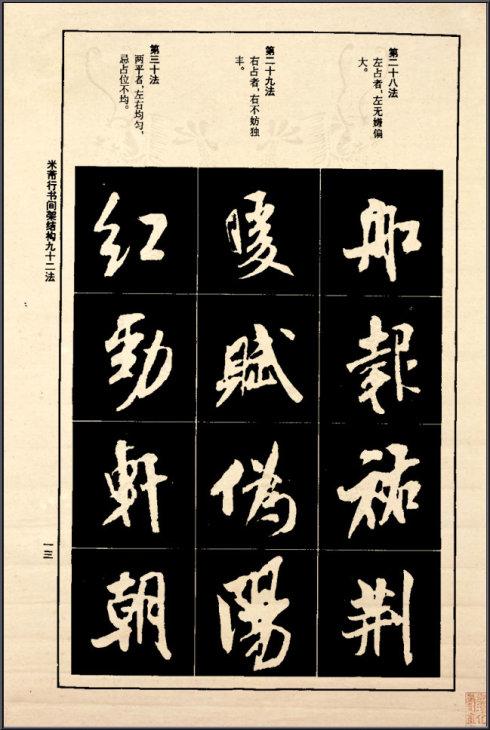 第二十八法
左占者，左无嫌偏
大。
第二十九法
右占者，右不妨独
丰。
第三十法
两平者，左右均匀，
忌占位不均。
船報祐荆
暖賦偽陽
紅勁軒朝
米芾行书间架结构九十二法
一三